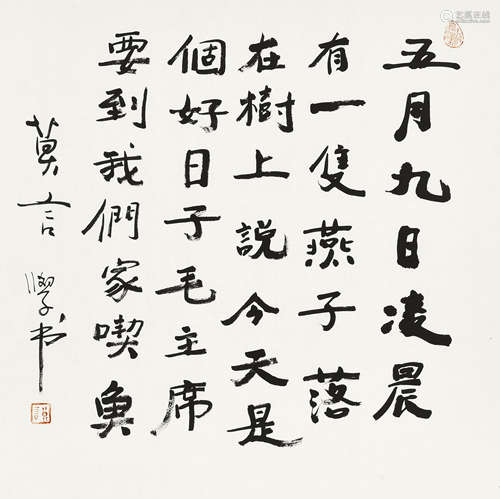 五月九日凌晨
有一隻燕子落
在樹上説今天是
個好日子毛主席
要到我們家喫魚
莫言 學书